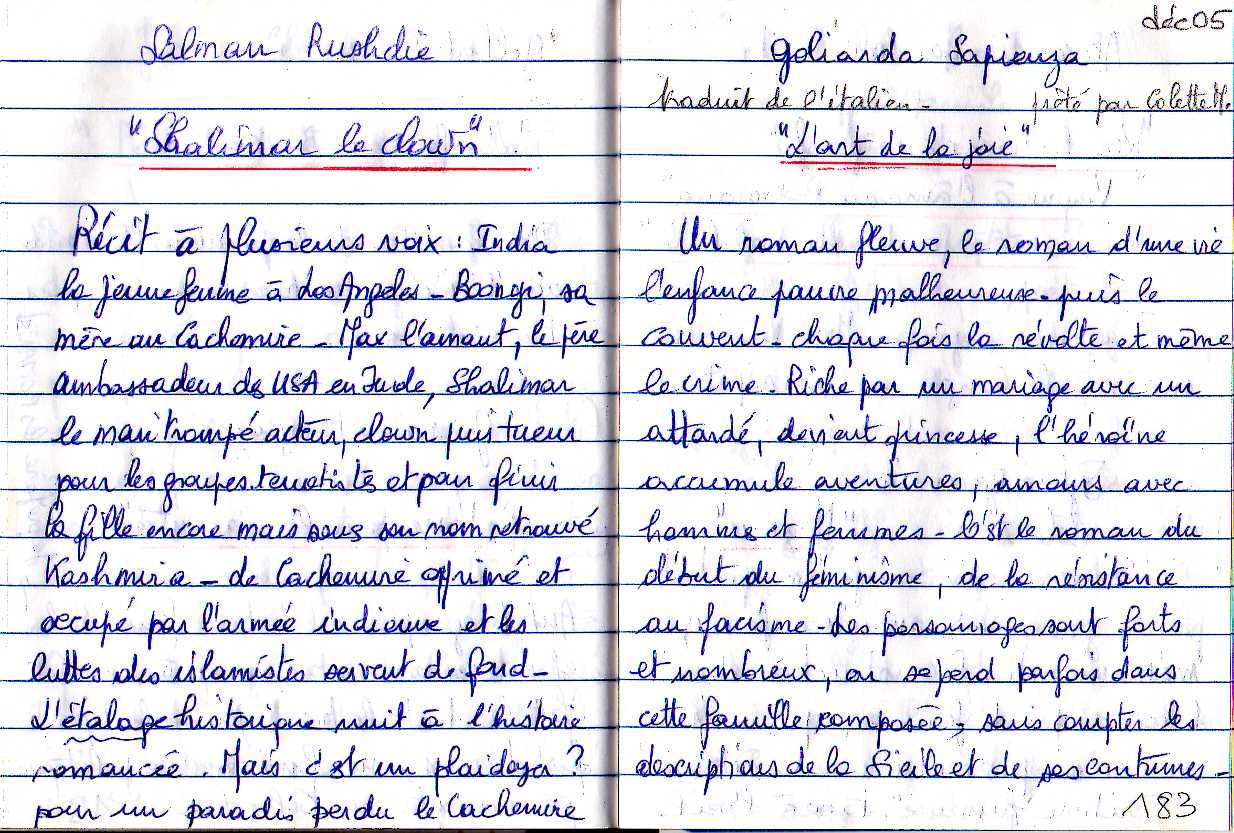 Salman Rushdie
"Shalimar le clown"
Récit à plusieurs voix : India
la jeune femme à Los Angeles - Boongi, sa
mère au Cachemire - Max l'amant, le père
ambassadeur des USA en Inde, Shalimar
le mari trompé acteur, clown puis tueur
pour les groupes terroristes et pour finir
la fille encore mais sous son nom retrouvé
Kashmira - de Cachemire opprimé et
occupé par l'armée indienne et les
luttes des islamistes servent de fond -
L'étalage historique nuit à l'histoire
romancée. Mais c'est un plaidoyer ?
pour un paradis perdu le Cachemire
déc 05
Goliarda Sapienza
traduit de l'italien - prêté par Colette H.
"L'art de la joie"
Un roman fleuve, le roman d'une vie
l'enfance pauvre malheureuse - puis le
couvent - chaque fois la révolte et même
le crime - Riche par un mariage avec un
attardé, devient princesse, l'héroïne
accumule aventures, amours avec
hommes et femmes - C'est le roman du
début du féminisme, de la résistance
au facisme - Les personnages sont forts
et nombreux, on se perd parfois dans
cette famille composée, sans compter les
descriptions de la Sicile et de ses coutumes -
183